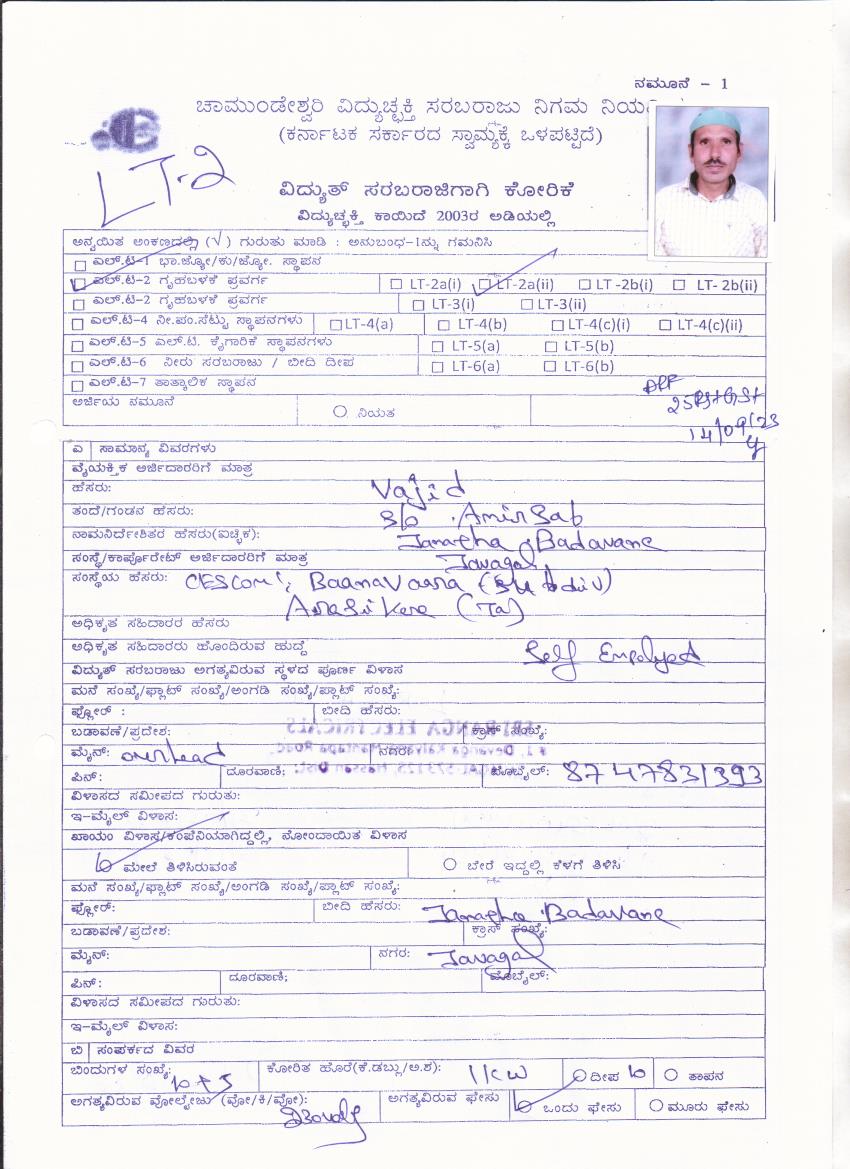 ನಮೂನೆ - 1
ಚಾಮುಂಡೇಶ್ವರಿ ವಿದ್ಯುಚ್ಛಕ್ತಿ ಸರಬರಾಜು ನಿಗಮ
(ಕರ್ನಾಟಕ ಸರ್ಕಾರದ ಸ್ವಾಮ್ಯಕ್ಕೆ ಒಳಪಟ್ಟಿದೆ)
LT-2
ವಿದ್ಯುತ್ ಸರಬರಾಜಿಗಾಗಿ ಕೋರಿಕೆ
ವಿದ್ಯುಚ್ಛಕ್ತಿ ಕಾಯಿದೆ 2003ರ ಅಡಿಯಲ್ಲಿ
ಅನ್ವಯಿತ ಅಂಕಣದಲ್ಲಿ (√) ಗುರುತು ಮಾಡಿ : ಅನುಬಂಧ-1ನ್ನು ಗಮನಿಸಿ
ಎಲ್.ಟಿ-1 ಭಾ.ಜ್ಯೋ/ಕು/ಜ್ಯೋ. ಸ್ಥಾಪನ
ಎಲ್.ಟಿ-2 ಗೃಹಬಳಕೆ ಪ್ರವರ್ಗ LT-2a(i) LT-2a(ii) LT -2b(i) LT- 2b(ii)
ಎಲ್.ಟಿ-2 ಗೃಹಬಳಕೆ ಪ್ರವರ್ಗ LT-3(i) LT-3(ii)
ಎಲ್.ಟಿ-4 ನೀ.ಪಂ.ಸೆಟ್ಟು ಸ್ಥಾಪನಗಳು LT-4(a) LT-4(b) LT-4(c)(i) LT-4(c)(ii)
ಎಲ್.ಟಿ-5 ಎಲ್.ಟಿ. ಕೈಗಾರಿಕೆ ಸ್ಥಾಪನಗಳು LT-5(a) LT-5(b)
ಎಲ್.ಟಿ-6 ನೀರು ಸರಬರಾಜು / ಬೀದಿ ದೀಪ LT-6(a) LT-6(b)
ಎಲ್.ಟಿ-7 ತಾತ್ಕಾಲಿಕ ಸ್ಥಾಪನ
ಅರ್ಜಿಯ ನಮೂನೆ ನಿಯತ
14/09/23
ಎ ಸಾಮಾನ್ಯ ವಿವರಗಳು
ವೈಯಕ್ತಿಕ ಅರ್ಜಿದಾರರಿಗೆ ಮಾತ್ರ
ಹೆಸರು: Vajid
ತಂದೆ/ಗಂಡನ ಹೆಸರು: S/o . Amir Sab
ನಾಮನಿರ್ದೇಶಿತರ ಹೆಸರು(ಐಚ್ಛಿಕ): Janatha Badavane
ಸಂಸ್ಥೆ/ಕಾರ್ಪೊರೇಟ್ ಅರ್ಜಿದಾರರಿಗೆ ಮಾತ್ರ Javagal
ಸಂಸ್ಥೆಯ ಹೆಸರು: CESCom
ಅಧಿಕೃತ ಸಹಿದಾರರ ಹೆಸರು
ಅಧಿಕೃತ ಸಹಿದಾರರು ಹೊಂದಿರುವ ಹುದ್ದೆ Self
ವಿದ್ಯುತ್ ಸರಬರಾಜು ಅಗತ್ಯವಿರುವ ಸ್ಥಳದ ಪೂರ್ಣ ವಿಳಾಸ
ಮನೆ ಸಂಖ್ಯೆ/ಫ್ಲಾಟ್ ಸಂಖ್ಯೆ/ಅಂಗಡಿ ಸಂಖ್ಯೆ/ಪ್ಲಾಟ್ ಸಂಖ್ಯೆ:
ಫ್ಲೋರ್ : ಬೀದಿ ಹೆಸರು:
ಬಡಾವಣೆ/ಪ್ರದೇಶ: ಕ್ರಾಸ್ ಸಂಖ್ಯೆ:
ಮೈನ್: overhead ನಗರ:
ಪಿನ್: ದೂರವಾಣಿ: ಮೊಬೈಲ್: 8747831393
ವಿಳಾಸದ ಸಮೀಪದ ಗುರುತು:
ಇ-ಮೈಲ್ ವಿಳಾಸ:
ಖಾಯಂ ವಿಳಾಸ/ಕಂಪೆನಿಯಾಗಿದ್ದಲ್ಲಿ, ನೋಂದಾಯಿತ ವಿಳಾಸ
ಮೇಲೆ ತಿಳಿಸಿರುವಂತೆ ಬೇರೆ ಇದ್ದಲ್ಲಿ ಕೆಳಗೆ ತಿಳಿಸಿ
ಮನೆ ಸಂಖ್ಯೆ/ಫ್ಲಾಟ್ ಸಂಖ್ಯೆ/ಅಂಗಡಿ ಸಂಖ್ಯೆ/ಪ್ಲಾಟ್ ಸಂಖ್ಯೆ:
ಫ್ಲೋರ್: ಬೀದಿ ಹೆಸರು: Janatha Badavane
ಬಡಾವಣೆ/ಪ್ರದೇಶ: ಕ್ರಾಸ್ ಸಂಖ್ಯೆ:
ಮೈನ್: ನಗರ: Javagal
ಪಿನ್: ದೂರವಾಣಿ: ಮೊಬೈಲ್:
ವಿಳಾಸದ ಸಮೀಪದ ಗುರುತು:
ಇ-ಮೈಲ್ ವಿಳಾಸ:
ಬಿ ಸಂಪರ್ಕದ ವಿವರ
ಬಿಂದುಗಳ ಸಂಖ್ಯೆ: ಕೋರಿತ ಹೊರೆ(ಕೆ.ಡಬ್ಲು/ಅ.ಶ): 1KW ದೀಪ ತಾಪನ
ಅಗತ್ಯವಿರುವ ವೋಲ್ಟೇಜು (ವೋ/ಕಿ/ವೋ): ಅಗತ್ಯವಿರುವ ಫೇಸು ಒಂದು ಫೇಸು ಮೂರು ಫೇಸು